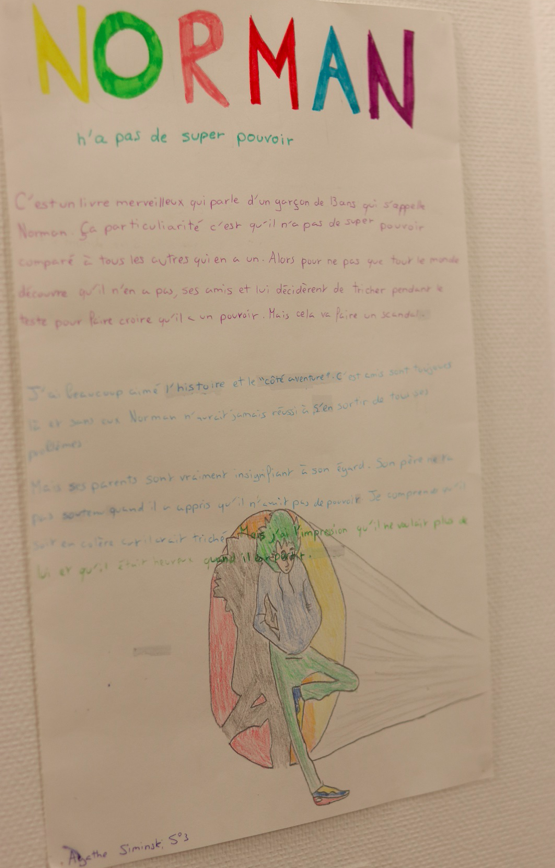 NORMAN
n'a pas de super pouvoir
C'est un livre merveilleux qui parle d'un garçon de 13ans qui s'appelle
Norman. Ça particuliarité c'est qu'il n'a pas de super pouvoir
comparé à tous les autres qui en a un. Alors pour ne pas que tout le monde
découvre qu'il n'en a pas, ses amis et lui décidèrent de tricher pendant le
teste pour faire croire qu'il a un pouvoir. Mais cela va faire un scandale
J'ai beaucoup aimé l'histoire et le "côté aventure" sont toujours
là et sans eux Norman n'aurait jamais réussi à s'en sortir de tous
problèmes
Mais ses parents sont vraiment insignifiant à son égard. Son père
pas soutenu quand il a appris qu'il n'avait pas de pouvoir Je comprends
soit en colère car il avait triché Mais j'ai l'impression qu'il ne voulait plus de
lui et qu'il était heureux quand il
Agathe Siminsk. 5°3